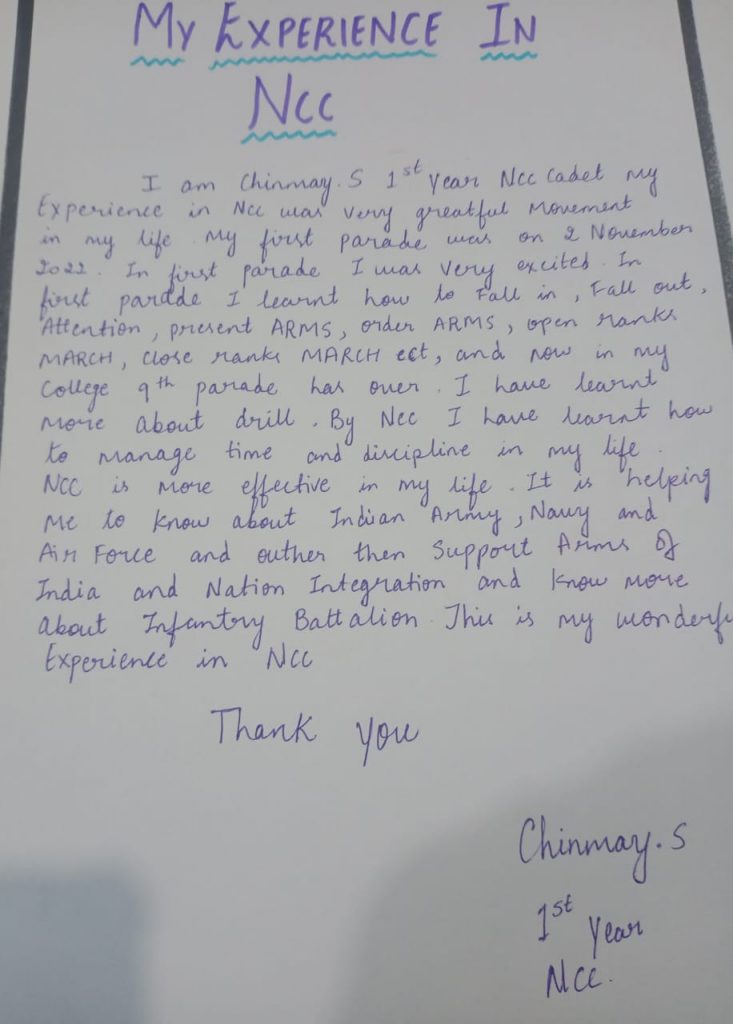 My EXPERIENCE IN
Ncc
I am Chinmay.S 1st Year Ncc Cadet my
Experience in Ncc was very greatful Movement
in my life. My first parade was on 2 November
2022. In first parade I was very excited. In
first parade I learnt how to Fall in, Fall out,
Attention, present ARMS, order ARMS, open ranks
MARCH, Close ranks MARCH ect, and now in my
College 9th parade has over. I have learnt
More about drill. By Ncc I have learnt how
to manage time and discipline in my life.
NCC is more effective in my life. It is helping
Me to know about Indian Army, Navy and
Air Force and outher then Support Arms of
India and Nation Integration and know more
about Infantry Battalion. This is my wonderfu
Experience in Ncc
Thank you
Chinmay.S
1st Year
Ncc.